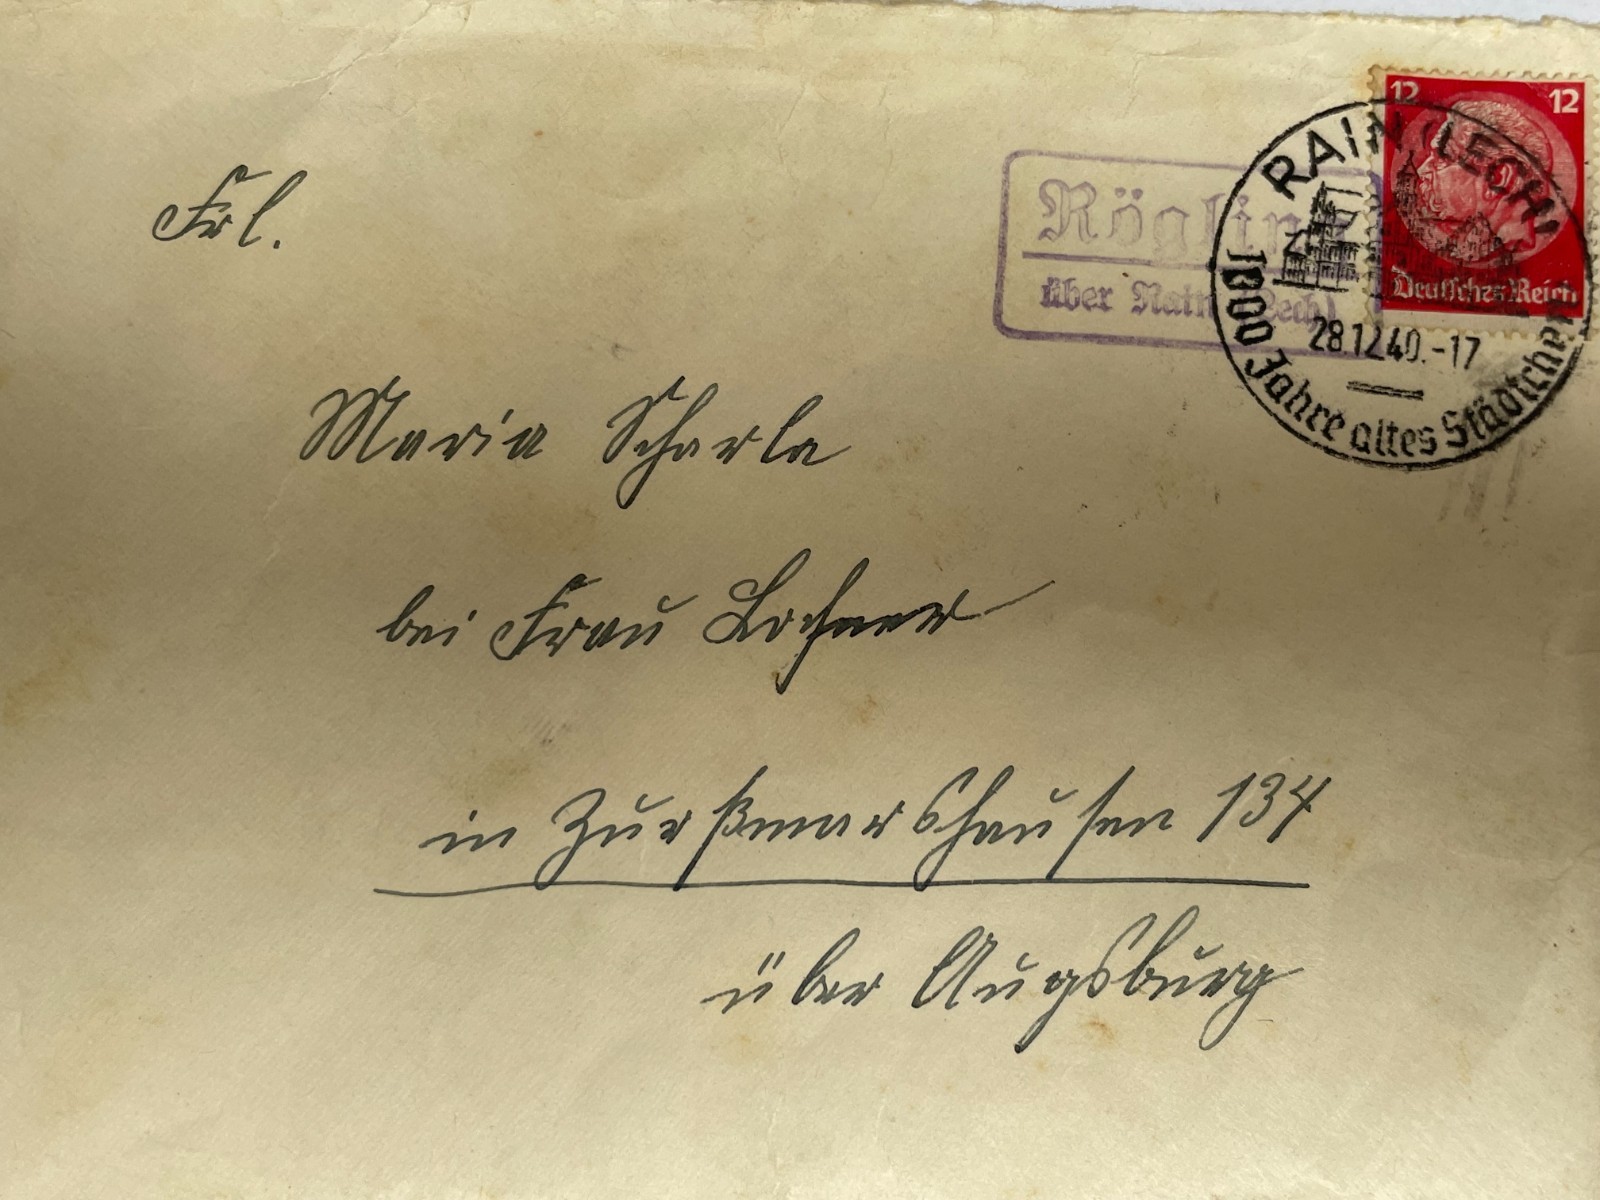 12 12
Deutsches Reich
RAIN (LECH)
28.12.40.-17
1000 Jahre altes Städtchen
Rögling
über Rain (Lech)
Frl.
Maria Scharla
bei Frau Lochner
in Zußmarshausen 134
über Augsburg